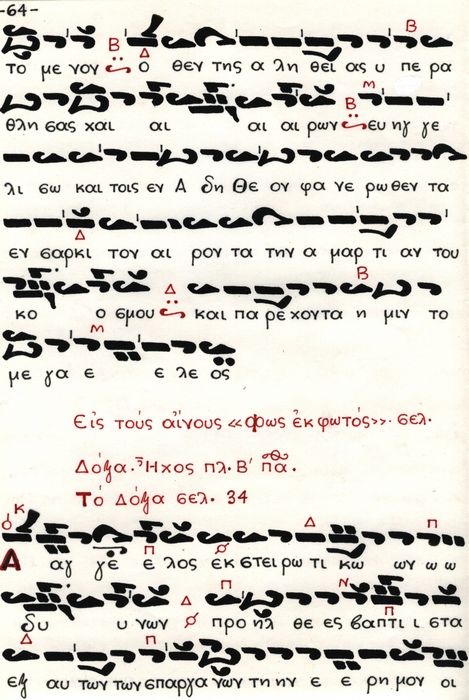 -64-
το με νον ο θεν της α λη θει ας υ πε ρα
θλη σας χαι αι αι αι ρων ευ ηγ γε
λι σω και τοις εν Α δη Θε ον φα νε ρω θεν τα
εν σαρκι τον αι ρον τα την α μαρ τι αν του
κο ο σμου και πα ρε χοντα η μιν το
με γα ε ε λε ος
Εἰς τούς αἴνους «φως ἐκ φωτός». σελ.
Δόξα. Ἦχος πλ. Β' πα.
Τό Δόξα σελ. 34
Α αγ γε ε λος εκ στει ρω τι κω ων ω ω
δυ υ νων προ ηλ θε ες βαπτι ι στα
εξ αυ των των σπαργα νων την ην ε ε ρη μον οι